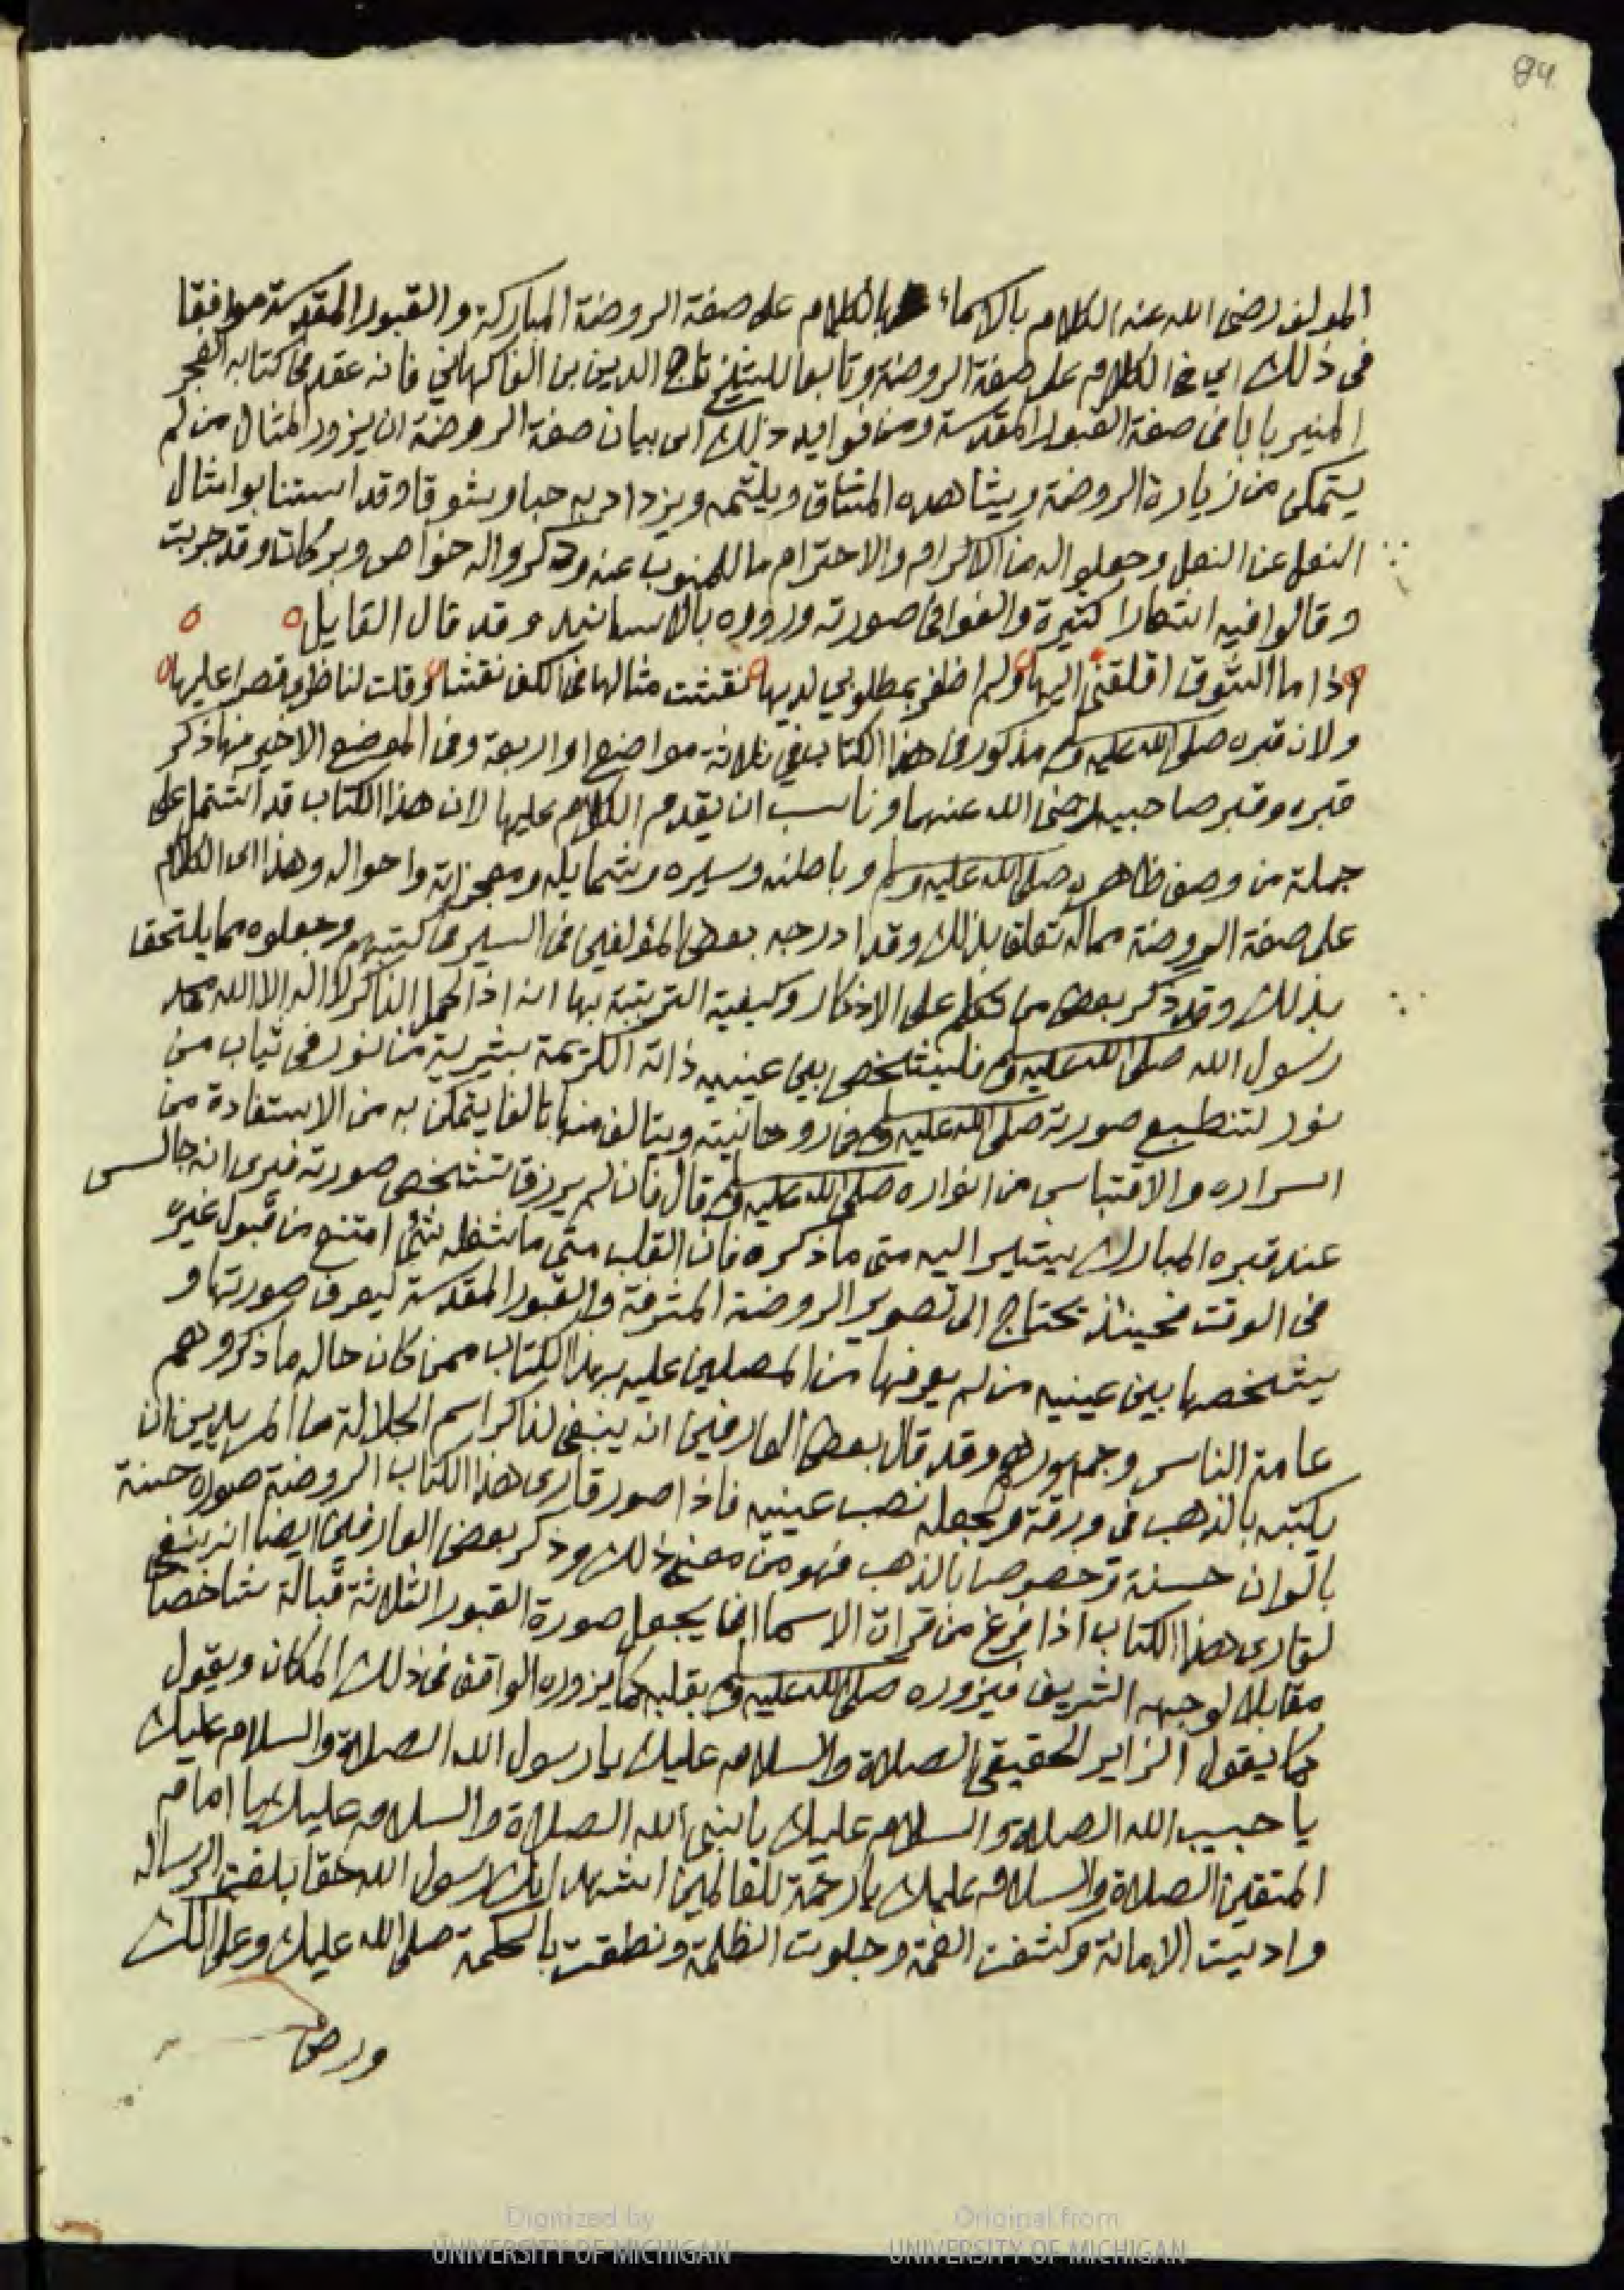 84
المولف رضى الله عنه الكلام بالاسماء بالكلام على صفة الروضة المباركة والقبور المقدسة موافقا
فى ذلك اي فى الكلام على صفة الروضة وتابعا للشيخ تاج الدين بن الفاكهاني فانه عقد فى كتابه الفجر
المنير بابا فى صفة القبور المقدسة ومن فوايد ذلك اى بيان صفة الروضة ان يزور المثال من لم
يتمكن من زيارة الروضة ويشاهده المشتاق ويلثمه ويزداد به حبا وشوقا وقد استنابوا مثال
النعل عن النعل وجعلوا له من الاكرام والاحترام ما للمنوب عنه وذكروا له خواص وبركات وقد جربت
وقالوا فيه اشعارا كثيرة والفوا فى صورته ورووه بالاسانيد وقد قال القايل
اذا ما الشوق اقلقني اليها ولم اظفر بمطلوبي لديها نقشت مثالها فى الكف نقشا وقلت لناظري قصرا عليها
ولان قبره صلى الله عليه وسلم مذكور فى هذا الكتاب فى ثلاثة مواضع او اربعة وفى الموضع الاخير منها ذكر
قبره وقبر صاحبيه رضى الله عنهما وناسب ان يقدم الكلام عليها لان هذا الكتاب قد اشتمل على
جملة من وصف ظاهره صلى الله عليه وسلم وباطنه وسيره وشمايله ومعجزاته واحواله وهذا اى الكلام
على صفة الروضة مما له تعلق بذلك وقد ادرجه بعض المؤلفين فى السير فى كتبهم وجعلوه مما يلتحق
بذلك وقد ذكر بعض من تكلم على الاذكار وكيفية التربية بها انه اذا كمل الذاكر لا اله الا الله محمد
رسول الله صلى الله عليه وسلم فليشخص بين عينيه ذاته الكريمة بشرية من نور فى ثياب من
نور لتنطبع صورته صلى الله عليه وسلم فى روحانيته ويتالف منها تالفا يتمكن به من الاستفادة من
اسراره والاقتباس من انواره صلى الله عليه وسلم قال فان لم يرزق تشخص صورته فيرى انه جالس
عند قبره المبارك يشير اليه متى ما ذكره فان القلب متى ما شغله شئ امتنع من قبول غيره
فى الوقت فحينئذ يحتاج الى تصوير الروضة المشرفة والقبور المقدسة ليعرف صورتها و
يشخصها بين عينيه من لم يعرفها من المصلين عليه بهذا الكتاب ممن كان حاله ما ذكر وهم
عامة الناس وجمهورهم وقد قال بعض العارفين انه ينبغى لذاكر اسم الجلالة من المريدين ان
يكتبه بالذهب فى ورقة ويجعله نصب عينيه فاذا صور قارى هذا الكتاب الروضة صورة حسنة
بالوان حسنة وخصوصا بالذهب فهو من معنى ذلك وذكر بعض العارفين ايضا انه ينبغى
لقارى هذا الكتاب اذا فرغ من قراة الاسما ان يجعل صورة القبور الثلاثة قبالة شاخصا
مقابلا لوجهه الشريف فيزوره صلى الله عليه وسلم بقلبه كما يزوره الواقف فى ذلك المكان ويقول
كما يقول الزاير الحقيقي الصلاة والسلام عليك يا رسول الله الصلاة والسلام عليك
يا حبيب الله الصلاة والسلام عليك يا نبى الله الصلاة والسلام عليك يا امام
المتقين الصلاة والسلام عليك يا رحمة للعالمين اشهد انك رسول الله حقا بلغت الرسالة
واديت الامانة وكشفت الغمة وجلوت الظلمة ونطقت بالحكمة صلى الله عليك وعلى الك
ورضى
Digitized by UNIVERSITY OF MICHIGAN
Original from UNIVERSITY OF MICHIGAN